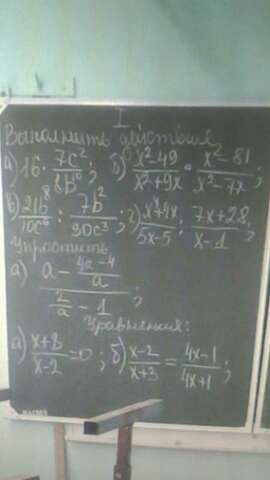 I
Выполнить действия
а) 16 · 7c²/8b⁶; б) (x²-49)/(x²+9x) · (x²-81)/(x²-7x);
в) 21b⁸/10c⁶ : 7b²/30c³; г) (x²+4x)/(5x-5) : (7x+28)/(x-1);
Упростить
а) (a - (4a-4)/a)/(2/a - 1);
Уравнения:
а) (x+8)/(x-2) = 0; б) (x-2)/(x+3) = (4x-1)/(4x+1);